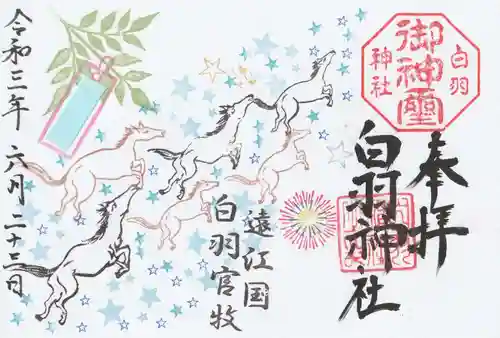 奉拝
白羽神社
白羽神社
御神璽
遠江国
白羽官牧
令和三年 六月 二十三日